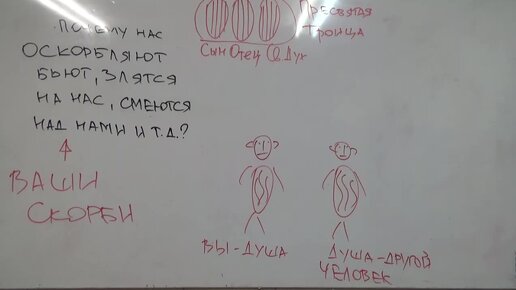 ПОЧЕМУ НАС
ОСКОРБЛЯЮТ
БЬЮТ, ЗЛЯТСЯ
НА НАС, СМЕЮТСЯ
НАД НАМИ И Т.Д.?
ВАШИ
СКОРБИ
ПРЕСВЯТАЯ
ТРОИЦА
СЫН ОТЕЦ СВ.ДУХ
ВЫ-ДУША
ДУША-ДРУГОЙ
ЧЕЛОВЕК